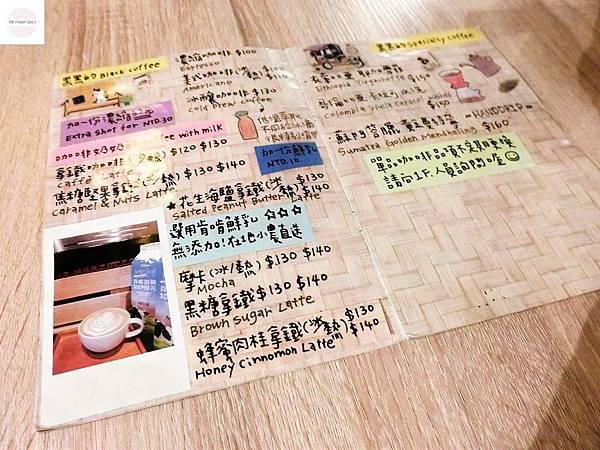 THE FUNNY DAILY
黑黑的 black coffee
濃縮咖啡 $100
Espresso
美式咖啡(冰/熱) $100
Americano
冰釀咖啡 $130
Cold Brew Coffee
加一份濃縮
Extra shot for NTD.30
coffee with milk
咖啡奶奶
$120 $130
拿鐵咖啡(冰/熱)
Caffe Latte
$130 $140
焦糖堅果拿鐵(冰/熱)
Caramel & Nuts Latte
加一份鮮乳
NTD.10
★花生海鹽拿鐵(冰/熱) $130 $140
Salted Peanut Butter Latte
選用肯啃鮮乳 ☆☆☆
無添加!在地小農直送
摩卡(冰/熱) $130 $140
Mocha
黑糖拿鐵 $130 $140
Brown Sugar Latte
蜂蜜肉桂拿鐵(冰/熱) $130 $140
Honey Cinnomon Latte
黑黑的 specialty coffee
Ethiopia Yirgacheffe $150
$150
-HANDDRIP-
蘇門答臘 黃金曼特寧 $160
Sumatra Golden Mandheling
單品咖啡品項不定期更換
請向1F.人員詢問喔